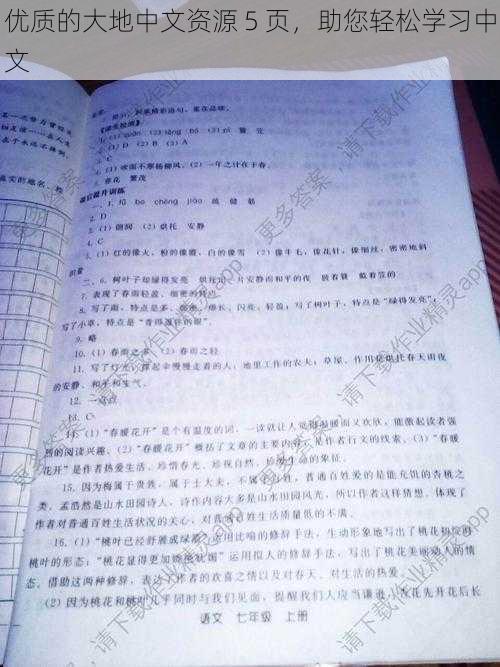 优质的大地中文资源 5 页，助您轻松学习中
文
《课堂检测》
3. D B A
4. (1)吹面不寒杨柳风 (2)一年之计在于春
5. 春花 繁茂
课后提升训练
一、1. fǔ bo chēng jiāo 疏 健 筋
2. D
3. (1)朗润 (2)烘托 安静
4. C
5. (1)红的像火，粉的像霞，白的像雪 (2)像牛毛，像花针，像细丝，密密地斜
织着
二、6. 树叶子却绿得发亮 烘托出一片安静而和平的夜 披着蓑 戴着笠的
7. 表现了春雨轻盈、细密的特点
写了小草，特点是“青得逼你的眼”
9. 略
10. (1)春雨之多 (2)春雨之轻
11. 写了灯光、撑起伞慢慢走着的人；地里工作的农夫；草屋。作用是烘托春天雨夜
的安静、和平和生气。
12. 一点点
13. C
14. (1)“春暖花开”是个有温度的词，一读就让人觉得温暖而又欢欣，能激起读者强
烈的阅读兴趣。(2)“春暖花开”概括了文章的主要内容，是作者行文的线索。(3)“春暖
花开”是作者热爱生活、珍惜春光、珍视自然、珍爱生命的象征。
15. 因为梅属于贵族，属于士大夫，不属于百姓，普通百姓爱的是能充饥的杏桃之
类。孟浩然是山水田园诗人，诗作内容大多是山水田园风光，所以作者这样猜想。体现了
作者对普通百姓生活状况的关心，对普通百姓生活质量低的不满。
16. (1)“桃叶已经舒雅成绿雾”运用比喻的修辞手法，生动形象地写出了桃花初绽时
桃叶的形态；“桃花显得更加娇艳妩媚”运用拟人的修辞手法，写出了桃花美丽动人的情
态。借助这两种修辞，表达了作者的欢喜之情以及对春天、对生活的热爱。
(2)因为桃花和桃叶几乎同时与我们见面，提醒我们人应当谦逊，杏花先开花后长
语文 七年级 上册
更多答案，请下载作业精灵app